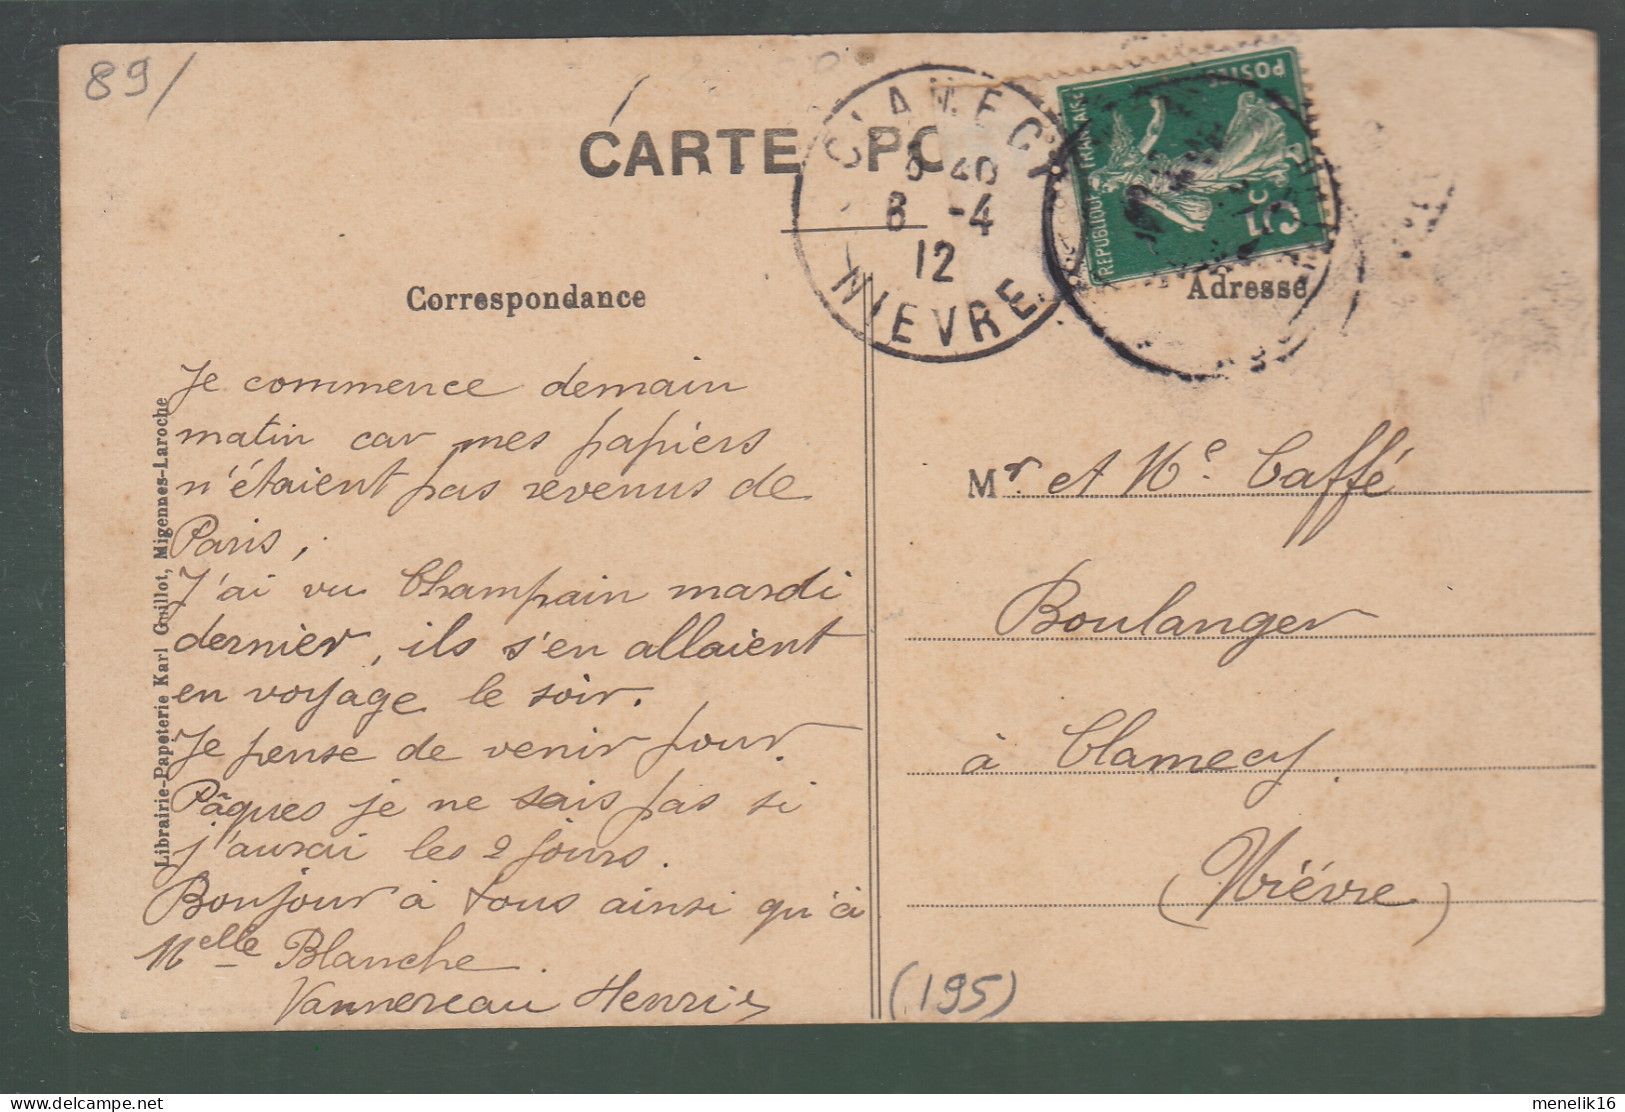 89/
CARTE PO
CLAMECY
8 40
8 -4
12
NIEVRE
POSTES
REPUBLIQUE FRANÇAISE
5 C
Correspondance
Adresse
Je commence demain
matin car mes papiers
n'étaient pas revenus de
Paris,
J'ai vu Champain mardi
dernier, ils s'en allaient
en voyage le soir.
Je pense de venir pour
Pâques je ne sais pas si
j'aurai les 2 jours.
Bonjour à tous ainsi qu'à
Melle Blanche.
Vannereau Henri
Librairie-Papeterie Karl Guillot, Migennes-Laroche
Mr. et Me. Caffé
Boulanger
à Clamecy.
(Nièvre)
(195)
delcampe.net
menelik16